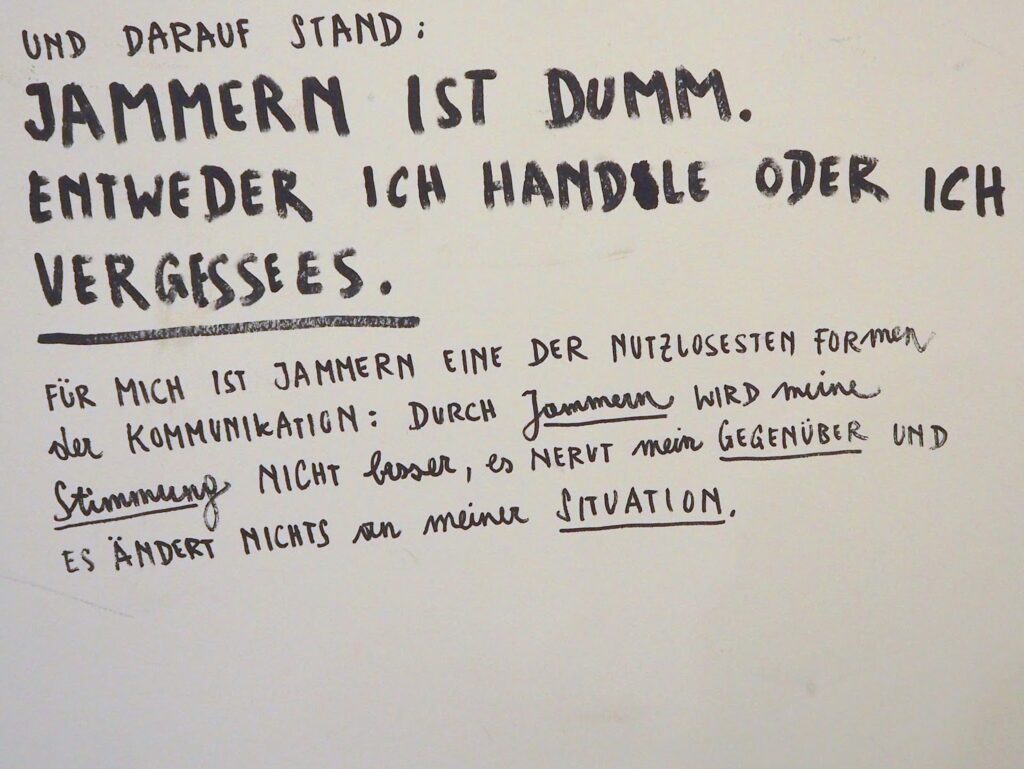 UND DARAUF STAND:
JAMMERN IST DUMM.
ENTWEDER ICH HANDLE ODER ICH
VERGESSEES.
FÜR MICH IST JAMMERN EINE DER NUTZLOSESTEN FORMen
der KOMMUNIKATION: DURCH Jammern WIRD meine
Stimmung NICHT besser, es NERVT mein GEGENÜBER UND
ES ÄNDERT NICHTS an meiner SITUATION.